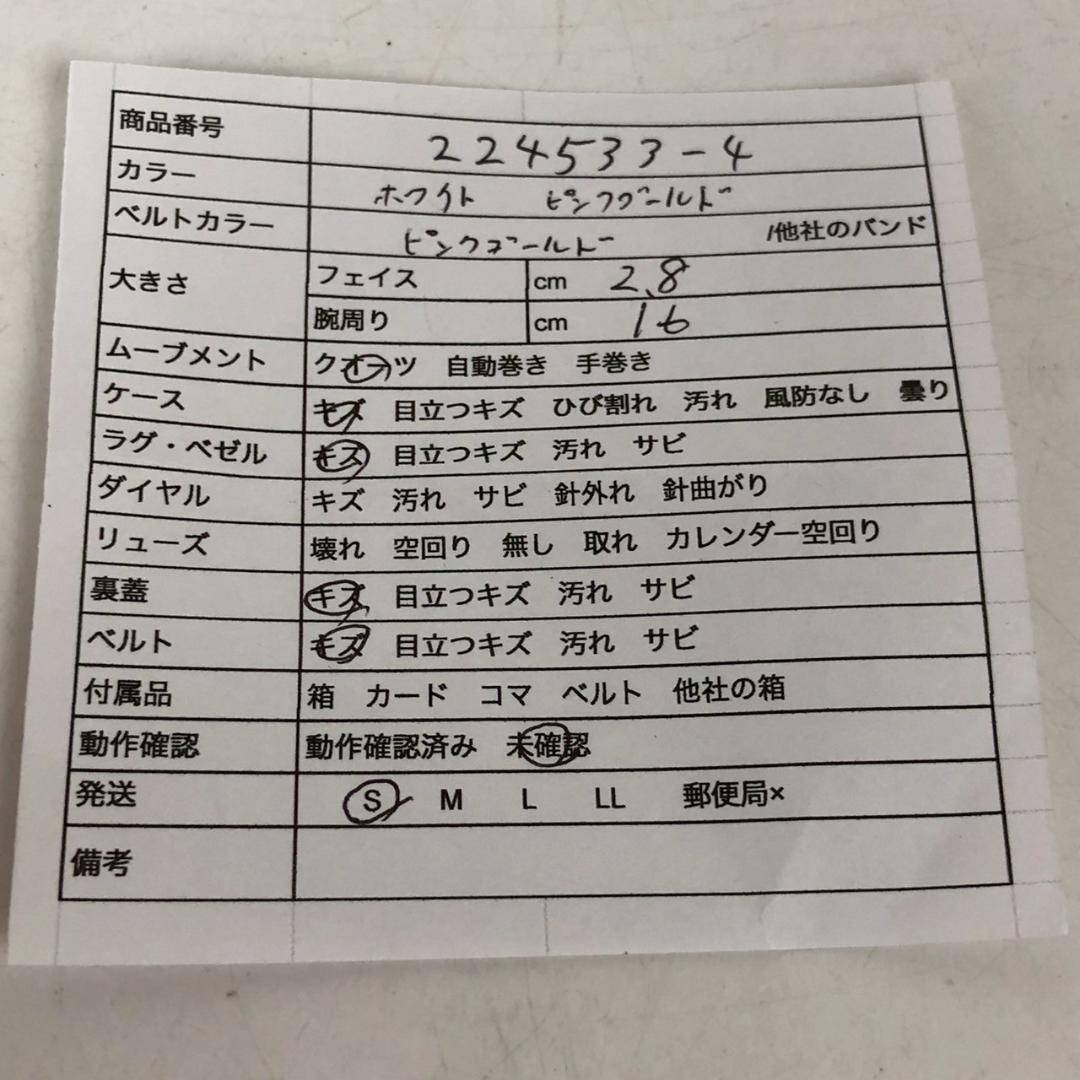 商品番号 224533-4
カラー ホワイト ピンクゴールド
ベルトカラー ピンクゴールド /他社のバンド
大きさ フェイス cm 2.8
腕周り cm 16
ムーブメント クオーツ 自動巻き 手巻き
ケース キズ 目立つキズ ひび割れ 汚れ 風防なし 曇り
ラグ・ベゼル キズ 目立つキズ 汚れ サビ
ダイヤル キズ 汚れ サビ 針外れ 針曲がり
リューズ 壊れ 空回り 無し 取れ カレンダー空回り
裏蓋 キズ 目立つキズ 汚れ サビ
ベルト キズ 目立つキズ 汚れ サビ
付属品 箱 カード コマ ベルト 他社の箱
動作確認 動作確認済み 未確認
発送 S M L LL 郵便局×
備考